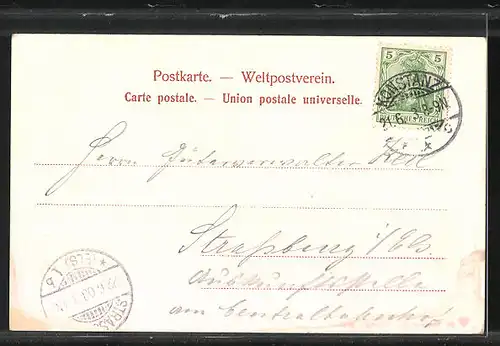 5 5
DEUTSCHES REICH
KONSTANZ
Postkarte. — Weltpostverein.
Carte postale. — Union postale universelle.
Herrn Güterverwalter
Straßburg i/Els.
Auskunftsstelle
am Centralbahnhof
STRASS
(ELS)